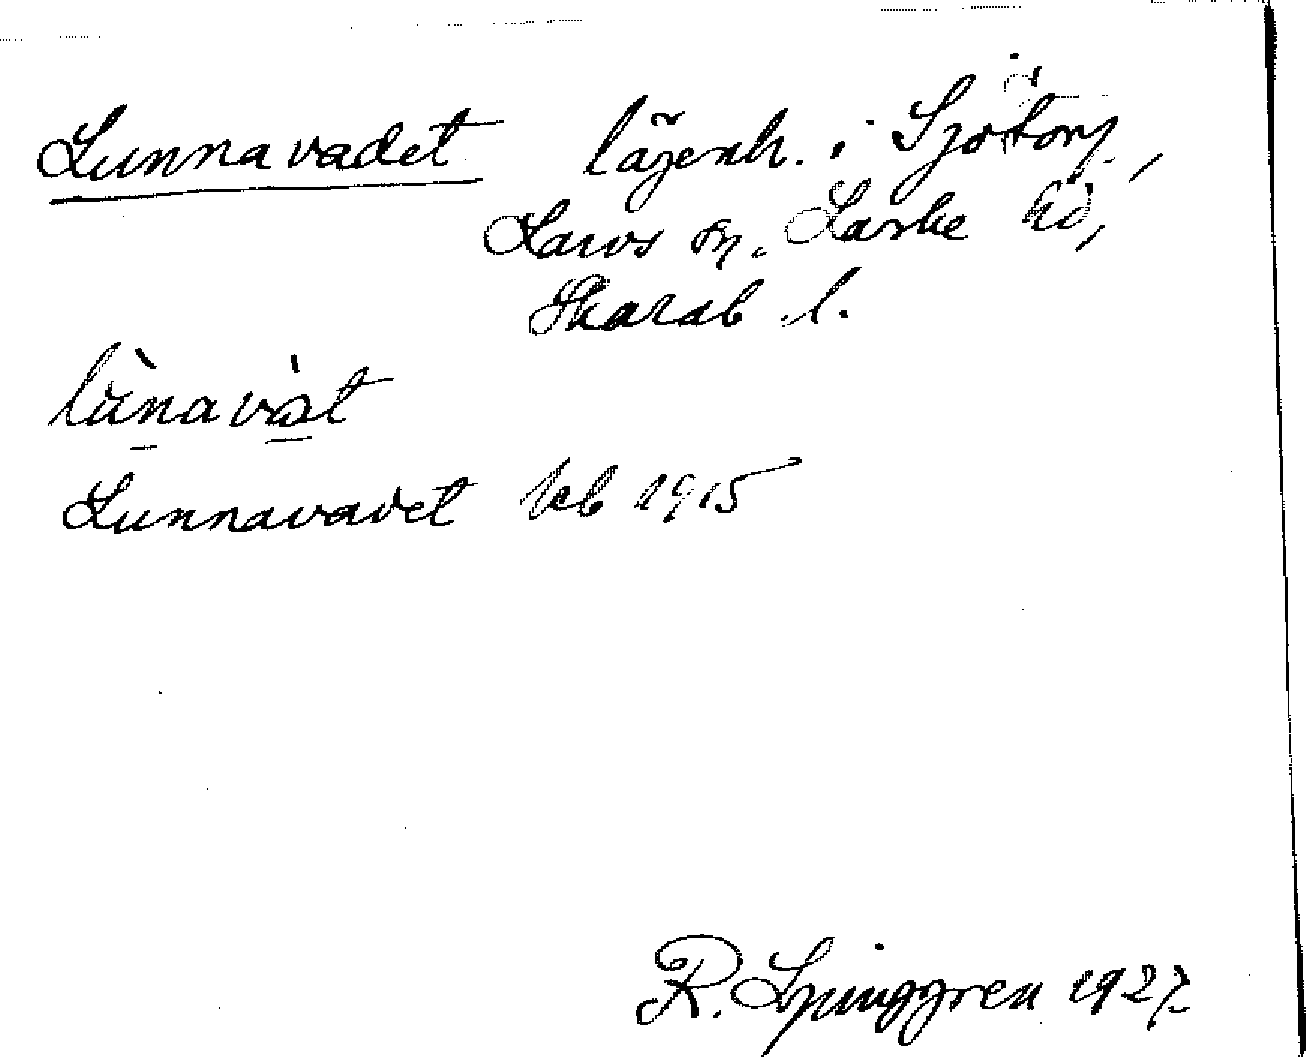 Lunnavadet lägenh. i Sjötorp,
Larvs sn. Laske hd,
Skarab. l.
lùnavàt
Lunnavadet kb 1915
R. Ljunggren 1927.